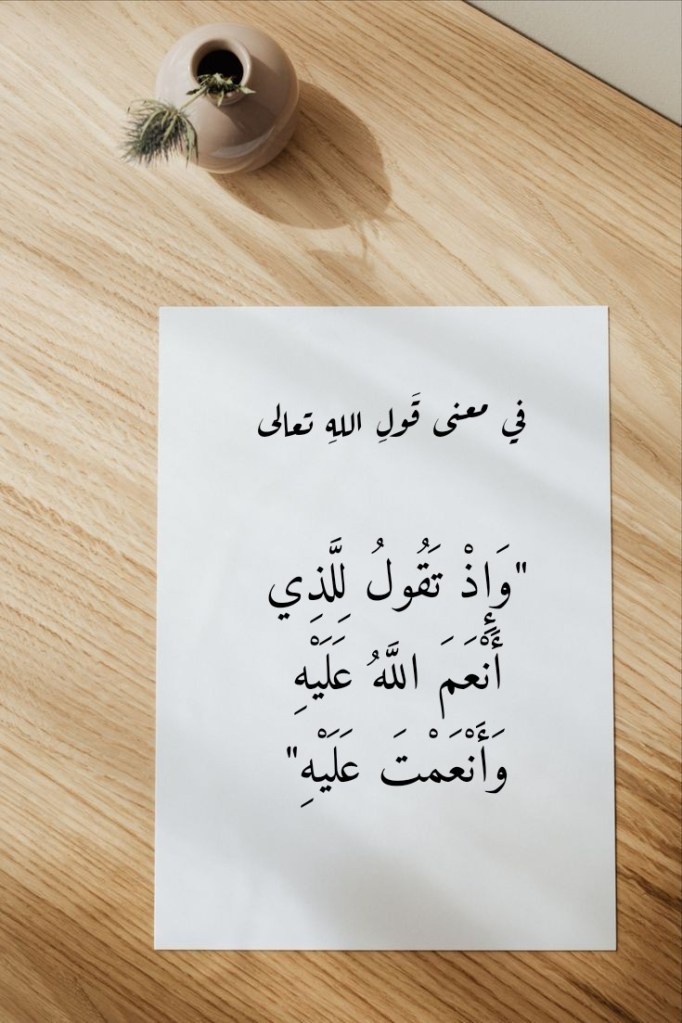 في معنى قَولِ اللهِ تعالى
"وَإِذْ تَقُولُ لِلَّذِي
أَنْعَمَ اللَّهُ عَلَيْهِ
وَأَنْعَمْتَ عَلَيْهِ"